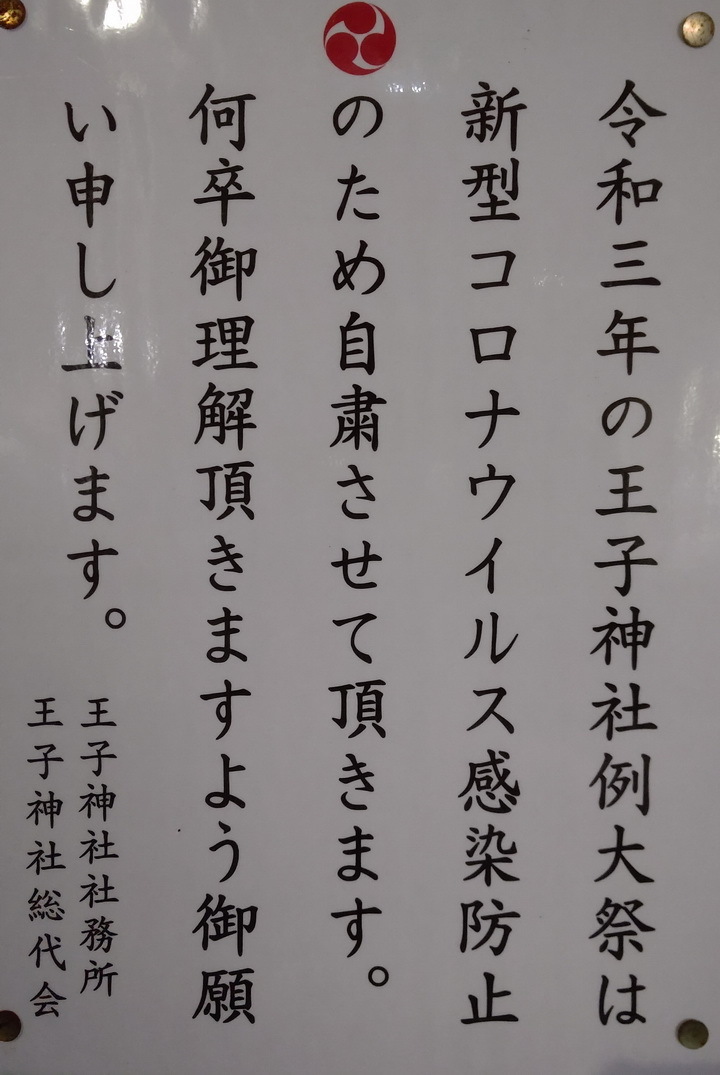 令和三年の王子神社例大祭は
新型コロナウイルス感染防止
のため自粛させて頂きます。
何卒御理解頂きますよう御願
い申し上げます。
王子神社社務所
王子神社総代会